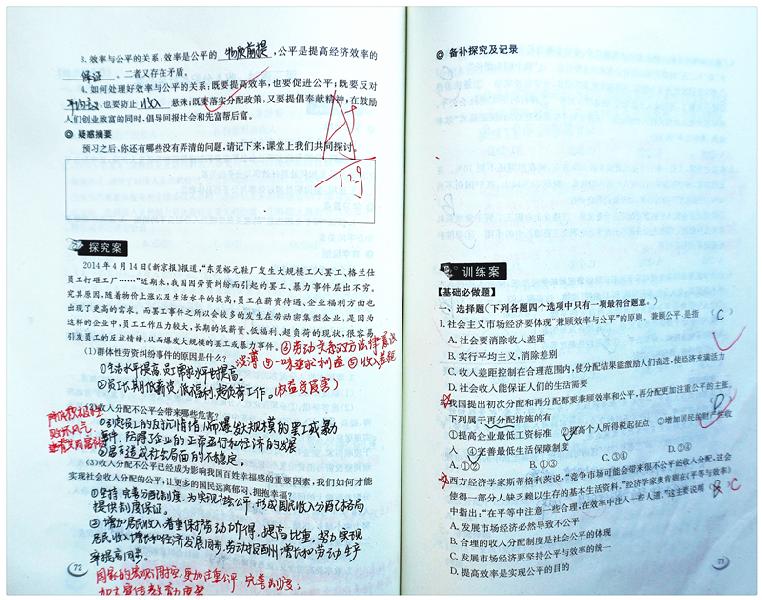 3. 效率与公平的关系. 效率是公平的 物质前提 ,公平是提高经济效率的
保证 。二者又存在矛盾。
4. 如何处理好效率与公平的关系:既要提高效率,也要促进公平;既要反对
平均主义,也要防止 收入 悬殊;既要落实分配政策,又要提倡奉献精神,在鼓励
人们创业致富的同时,倡导回报社会和先富帮后富。
◎ 疑惑摘要
预习之后,你还有哪些没有弄清的问题,请记下来,课堂上我们共同探讨。
探究案
2014年4月14日《新京报》报道,“东莞裕元鞋厂发生大规模工人罢工、格兰仕
员工打砸工厂……”近期来,我国因劳资纠纷而引起的罢工、暴力事件层出不穷。
究其原因,随着物价上涨以及生活水平的提高,员工在薪资待遇、企业福利方面也
出现了更高的需求。而罢工事件之所以会较多的发生在劳动密集型企业,是因为
这样的企业中,员工工作压力较大,长期的低薪资、低福利、超负荷的现状,很容易
引发员工的反抗情绪,从而爆发大规模的罢工或暴力事件。
(1)群体性劳资纠纷事件的原因是什么?
①生活水平提高,员工需求水平的提高。
②员工长期低薪资,低福利,超负荷工作。(权益受侵害)
(2)收入分配不公平会带来哪些危害?
①引起员工的反抗情绪,从而爆发大规模的罢工或暴力
事件,阻碍了企业的正常运行和经济的发展
②易造成社会局面的不稳定。
(3)收入分配不公平已经成为影响我国百姓幸福感的重要因素,我们如何才能
实现社会收入分配的公平,让更多的国民远离郁闷、拥抱幸福?
①坚持、完善分配制度,为实现社会公平,形成国民收入分配合理格局
提供制度保证。
②增加居民收入,着重保护劳动所得,提高比重,努力实现
居民收入增长和经济发展同步,劳动报酬增长和劳动生产
率提高同步。
72
◎ 备补探究及记录
训练案
【基础必做题】
一、选择题。(下列各题四个选项中只有一项最符合题意。)
1. 社会主义市场经济要体现“兼顾效率与公平”的原则。兼顾公平,是指 ( C )
A. 社会要消除收入差距
B. 实行平均主义,消除差别
C. 收入差距控制在合理范围内,使分配结果能激励人们奋进,使经济充满活力
D. 社会收入能保证人们的生活需要
2. 我国提出初次分配和再分配都要兼顾效率和公平,再分配更加注重公平的主张。
下列属于再分配措施的有 ( D )
①提高企业最低工资标准 ②提高个人所得税起征点 ③增加居民的财产性收
入 ④完善最低生活保障制度
A. ①② B. ①③ C. ③④ D. ②④
3. 西方经济学家斯蒂格利茨说:“竞争市场可能会带来很不公平的收入分配,这会
使得一部分人缺乏赖以生存的基本生活资料。”经济学家奥肯则在《平等与效率》
中指出:“在平等中注意一些合理,在效率中注入一些人道。”这主要说明 C
A. 发展市场经济必然导致不公平
B. 合理的收入分配制度是社会公平的体现
C. 发展市场经济要坚持公平与效率的统一
D. 提高效率是实现公平的目的
73